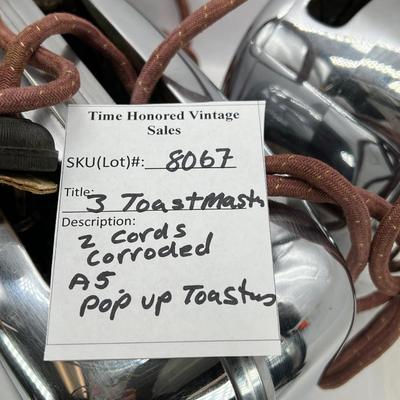 Time Honored Vintage
Sales
SKU(Lot)#: 8067
Title: 3 ToastMastr
Description:
2 cords
corroded
A5.
pop up Toasters